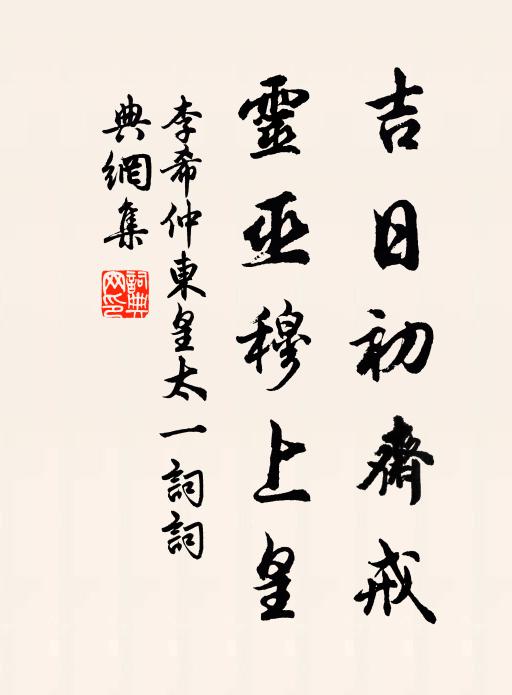 吉日初齋戒
靈巫穆上皇
李希仲東皇太一詞詞
典網集
詞典
網印